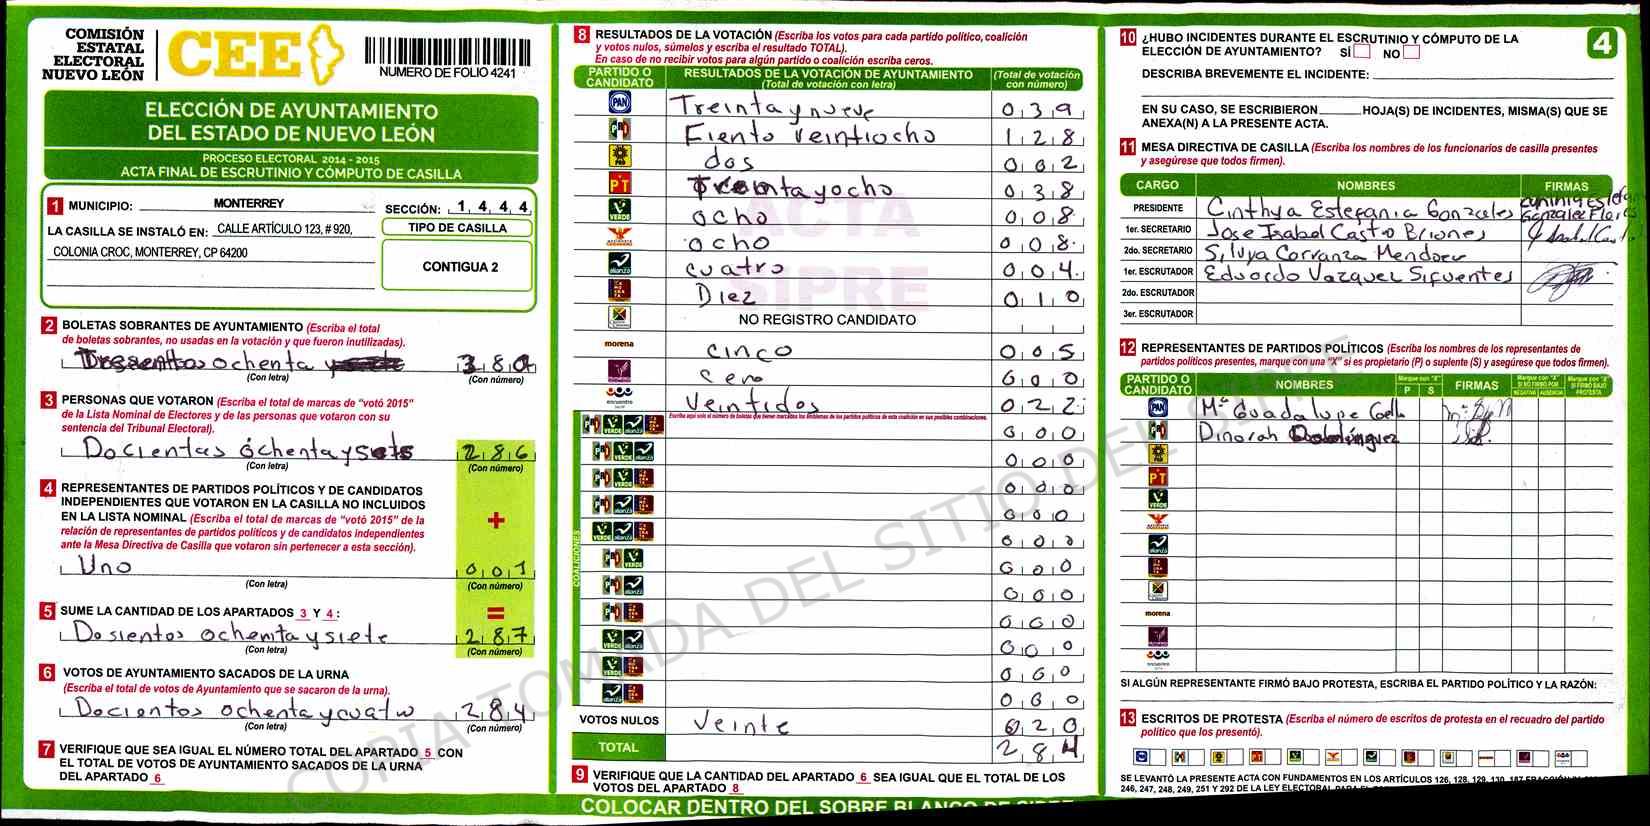 COMISIÓN
ESTATAL
ELECTORAL
NUEVO LEÓN
CEE
NUMERO DE FOLIO 4241
ELECCIÓN DE AYUNTAMIENTO
DEL ESTADO DE NUEVO LEÓN
PROCESO ELECTORAL 2014 - 2015
ACTA FINAL DE ESCRUTINIO Y CÓMPUTO DE CASILLA
1 MUNICIPIO: MONTERREY
SECCIÓN: 1 4 4 4
LA CASILLA SE INSTALÓ EN: CALLE ARTÍCULO 123, # 920,
COLONIA CROC, MONTERREY, CP 64200
TIPO DE CASILLA
CONTIGUA 2
2 BOLETAS SOBRANTES DE AYUNTAMIENTO (Escriba el total
de boletas sobrantes, no usadas en la votación y que fueron inutilizadas).
ochenta 3 8
(Con letra) (Con número)
3 PERSONAS QUE VOTARON (Escriba el total de marcas de "votó 2015"
de la Lista Nominal de Electores y de las personas que votaron con su
sentencia del Tribunal Electoral).
Docientas óchenta y 2 8 6
(Con letra) (Con número)
4 REPRESENTANTES DE PARTIDOS POLÍTICOS Y DE CANDIDATOS
INDEPENDIENTES QUE VOTARON EN LA CASILLA NO INCLUIDOS
EN LA LISTA NOMINAL (Escriba el total de marcas de "votó 2015" de la
relación de representantes de partidos políticos y de candidatos independientes
ante la Mesa Directiva de Casilla que votaron sin pertenecer a esta sección).
+
Uno 0 0 1
(Con letra) (Con número)
5 SUME LA CANTIDAD DE LOS APARTADOS 3 Y 4 : =
Dosientos ochenta y siete 2 8 7
(Con letra) (Con número)
6 VOTOS DE AYUNTAMIENTO SACADOS DE LA URNA
(Escriba el total de votos de Ayuntamiento que se sacaron de la urna).
Docientos ochenta y cuatro 2 8 4
(Con letra) (Con número)
7 VERIFIQUE QUE SEA IGUAL EL NÚMERO TOTAL DEL APARTADO 5 CON
EL TOTAL DE VOTOS DE AYUNTAMIENTO SACADOS DE LA URNA
DEL APARTADO 6
8 RESULTADOS DE LA VOTACIÓN (Escriba los votos para cada partido político, coalición
y votos nulos, súmelos y escriba el resultado TOTAL).
En caso de no recibir votos para algún partido o coalición escriba ceros.
PARTIDO O CANDIDATO RESULTADOS DE LA VOTACIÓN DE AYUNTAMIENTO (Total de votación con letra) (Total de votación con número)
PAN Treinta y nueve 0 3 9
PRI Ciento veintiocho 1 2 8
PRD dos 0 0 2
PT Treinta y ocho 0 3 8
VERDE ocho 0 0 8
ocho 0 0 8
alianza cuatro 0 0 4
Diez 0 1 0
NO REGISTRO CANDIDATO
morena cinco 0 0 5
Cero 0 0 0
encuentro Veintidos 0 2 2
Escriba aquí solo el número de boletas que tienen marcados los emblemas de los partidos políticos de esta coalición en sus posibles combinaciones.
COALICIONES
PRI VERDE alianza 0 0 0
PRI VERDE alianza 0 0 0
PRI VERDE 0 0 0
PRI alianza 0 0 0
VERDE alianza 0 0 0
PRI VERDE 0 0 0
PRI alianza 0 0 0
PRI 0 0 0
VERDE alianza 0 0 0
VERDE 0 0 0
alianza 0 0 0
VOTOS NULOS Veinte 0 2 0
TOTAL 2 8 4
9 VERIFIQUE QUE LA CANTIDAD DEL APARTADO 6 SEA IGUAL QUE EL TOTAL DE LOS
VOTOS DEL APARTADO 8
COLOCAR DENTRO DEL SOBRE BLANCO DE SIPRE
ACTA
SIPRE
COPIA TOMADA DEL SITIO DEL SIPRE
10 ¿HUBO INCIDENTES DURANTE EL ESCRUTINIO Y CÓMPUTO DE LA
ELECCIÓN DE AYUNTAMIENTO? SÍ NO
4
DESCRIBA BREVEMENTE EL INCIDENTE:
EN SU CASO, SE ESCRIBIERON HOJA(S) DE INCIDENTES, MISMA(S) QUE SE
ANEXA(N) A LA PRESENTE ACTA.
11 MESA DIRECTIVA DE CASILLA (Escriba los nombres de los funcionarios de casilla presentes
y asegúrese que todos firmen).
CARGO NOMBRES FIRMAS
PRESIDENTE Cinthya Estefania Gonzales
Gonzalez Flores
1er. SECRETARIO Jose Isabel Castro Briones
2do. SECRETARIO Silvya Carranza Mendoza
1er. ESCRUTADOR Eduardo Vazquez Sifuentes
2do. ESCRUTADOR
3er. ESCRUTADOR
12 REPRESENTANTES DE PARTIDOS POLÍTICOS (Escriba los nombres de los representantes de
partidos políticos presentes, marque con una "X" si es propietario (P) o suplente (S) y asegúrese que todos firmen).
PARTIDO O CANDIDATO NOMBRES Marque con "X" P S FIRMAS Marque con "X" SI NO FIRMÓ POR NEGATIVA AUSENCIA Marque con "X" SI FIRMÓ BAJO PROTESTA
PAN Ma Guadalupe
PRI Dinorah
PRD
PT
VERDE
alianza
morena
encuentro
SI ALGÚN REPRESENTANTE FIRMÓ BAJO PROTESTA, ESCRIBA EL PARTIDO POLÍTICO Y LA RAZÓN:
13 ESCRITOS DE PROTESTA (Escriba el número de escritos de protesta en el recuadro del partido
político que los presentó).
SE LEVANTÓ LA PRESENTE ACTA CON FUNDAMENTOS EN LOS ARTÍCULOS 126, 128, 129, 130, 187
246, 247, 248, 249, 251 Y 292 DE LA LEY ELECTORAL